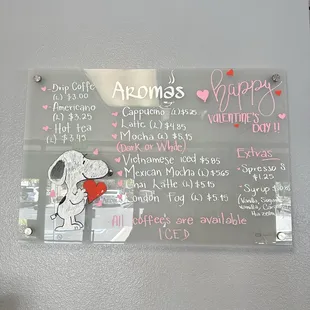 Drip Coffe
(L) $3.00
Americano
(L) $3.25
Hot tea
(L) $3.45
Aromas
Cappucino (L) $5.25
Latte (L) $4.85
Mocha (L) $5.45
(Dark or White)
Vietnamese iced $5.85
Mexican Mocha (L) $5.65
Chai Latte (L) $5.15
London Fog (L) $5.45
All coffee's are available
ICED
happy
VALENTINE'S
DAY!!
Extras
-Spresso $
1.25
-Syrup
(Vanilla,
Vanilla,